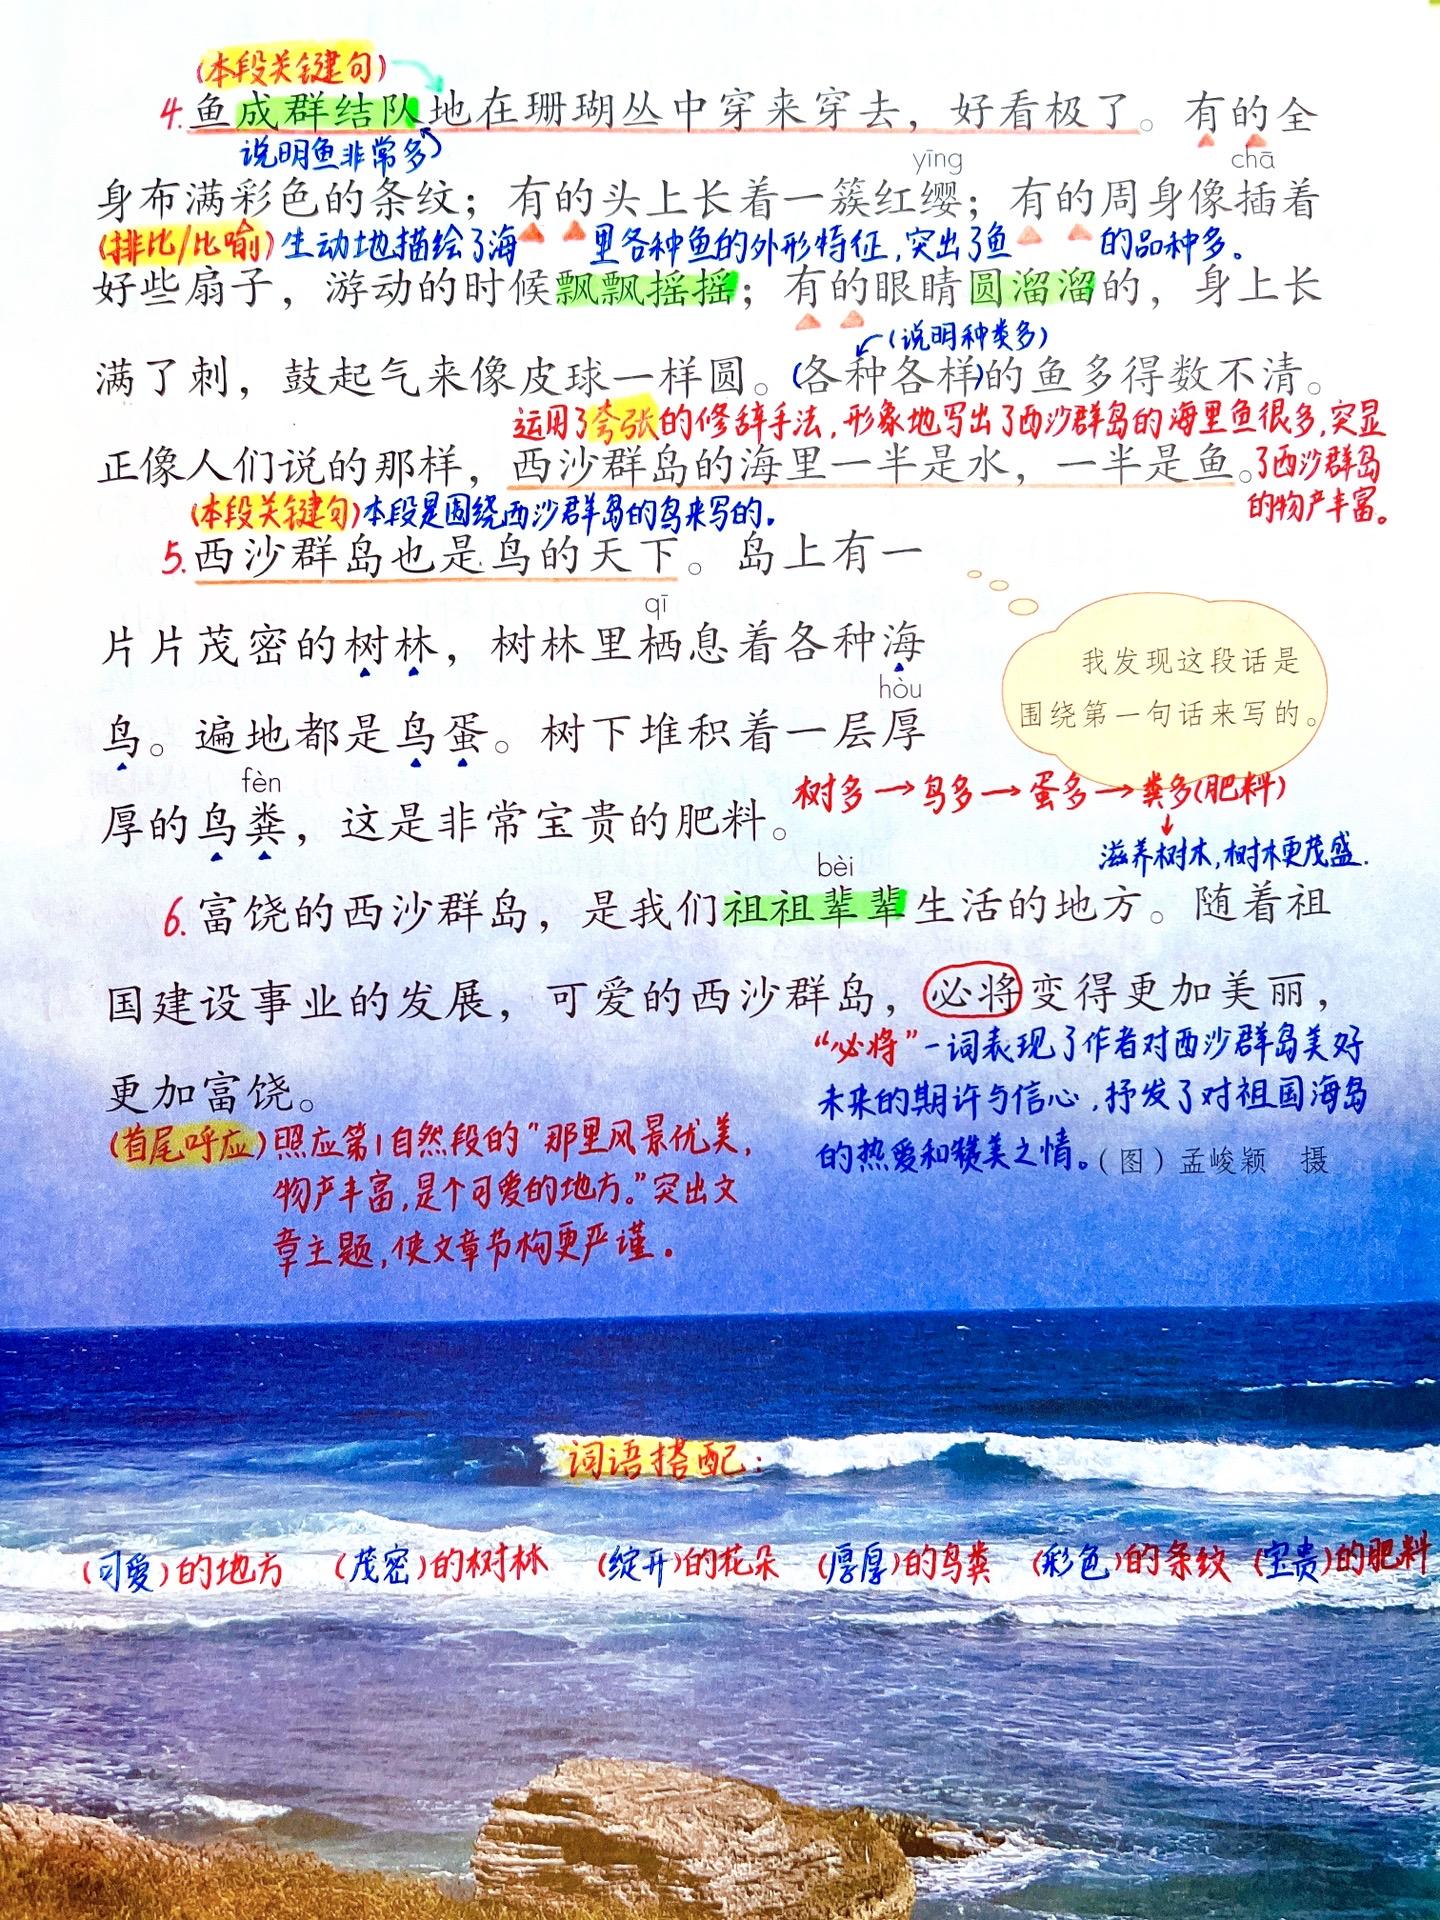 (本段关键句)
4.鱼成群结队地在珊瑚丛中穿来穿去，好看极了。有的全
说明鱼非常多
yīng chā
身布满彩色的条纹；有的头上长着一簇红缨；有的周身像插着
(排比/比喻)生动地描绘了海里各种鱼的外形特征,突出了鱼的品种多。
好些扇子，游动的时候飘飘摇摇；有的眼睛圆溜溜的，身上长
(说明种类多)
满了刺，鼓起气来像皮球一样圆。(各种各样)的鱼多得数不清。
运用了夸张的修辞手法,形象地写出了西沙群岛的海里鱼很多,突显
正像人们说的那样，西沙群岛的海里一半是水，一半是鱼。
了西沙群岛
的物产丰富。
(本段关键句)本段是围绕西沙群岛的鸟来写的。
5.西沙群岛也是鸟的天下。岛上有一
qī
片片茂密的树林，树林里栖息着各种海
hòu
鸟。遍地都是鸟蛋。树下堆积着一层厚
fèn
厚的鸟粪，这是非常宝贵的肥料。
我发现这段话是
围绕第一句话来写的。
树多→鸟多→蛋多→粪多(肥料)
滋养树木,树林更茂盛.
bèi
6.富饶的西沙群岛，是我们祖祖辈辈生活的地方。随着祖
国建设事业的发展，可爱的西沙群岛，必将变得更加美丽，
更加富饶。
“必将”一词表现了作者对西沙群岛美好
未来的期许与信心,抒发了对祖国海岛
的热爱和赞美之情。
(图)孟峻颖 摄
(首尾呼应)照应第1自然段的“那里风景优美,
物产丰富,是个可爱的地方。”突出文
章主题,使文章节构更严谨。
词语搭配:
(可爱)的地方 (茂密)的树林 (绽开)的花朵 (厚厚)的鸟粪 (彩色)的条纹 (宝贵)的肥料